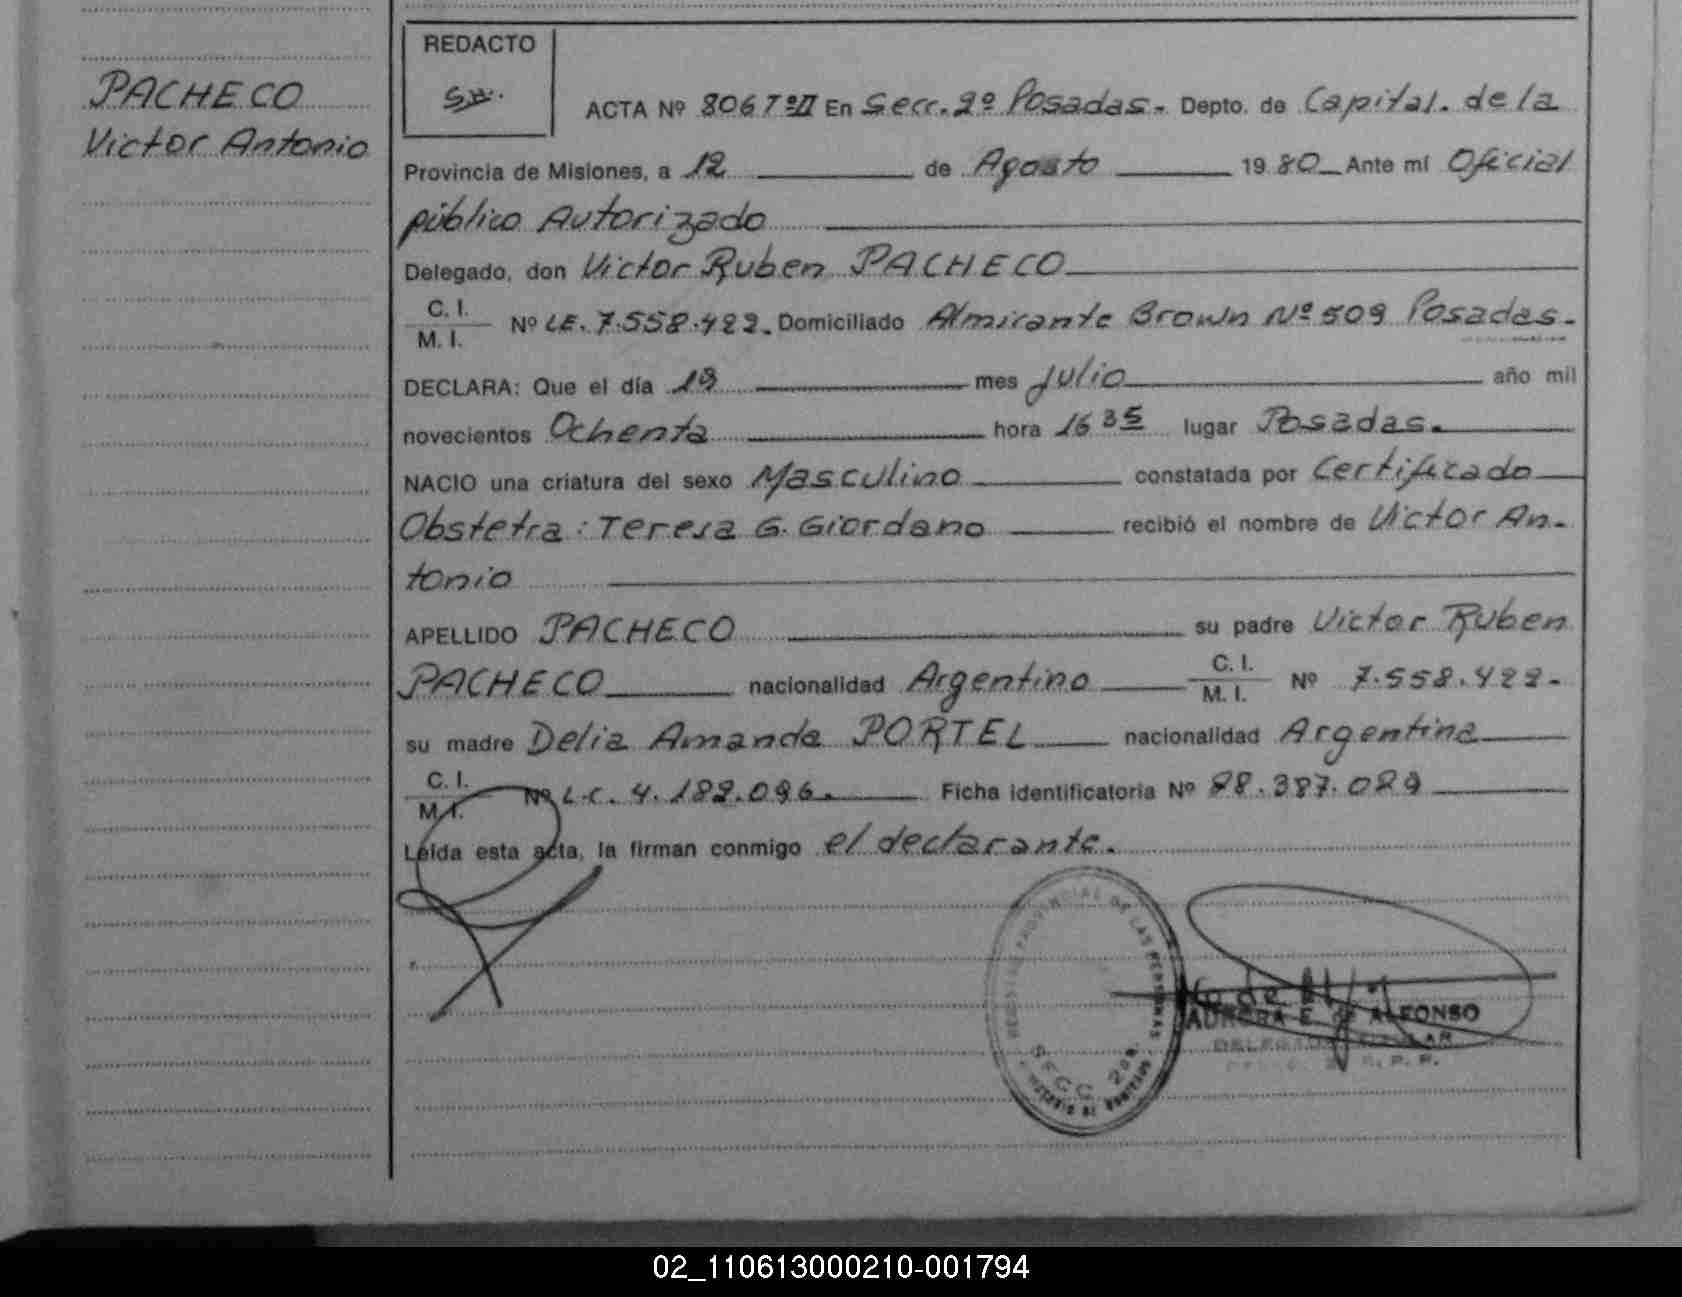 PACHECO
Victor Antonio
REDACTO
ACTA Nº 806 Tº II En Secc. 2º Posadas. Depto. de Capital. de la
Provincia de Misiones, a 12 de Agosto 1980 Ante mí Oficial
público Autorizado
Delegado, don Victor Ruben PACHECO
C. I.
M. I.
Nº LE. 7.558.422. Domiciliado Almirante Brown Nº 509 Posadas.
DECLARA: Que el día 19 mes Julio año mil
novecientos Ochenta hora 16 35 lugar Posadas.
NACIO una criatura del sexo Masculino constatada por Certificado
Obstetra: Teresa G. Giordano recibió el nombre de Victor An-
tonio
APELLIDO PACHECO su padre Victor Ruben
PACHECO nacionalidad Argentino C. I. M. I. Nº 7.558.422.
su madre Delia Amanda PORTEL nacionalidad Argentina
C. I.
M. I.
Nº L.C. 4.189.096. Ficha identificatoria Nº 28.387.089
Leída esta acta, la firman conmigo el declarante.
REGISTRO PROVINCIAL DE LAS PERSONAS
SECC. 2da.
AURORA E. de ALFONSO
DELEGADA TITULAR
02_110613000210-001794